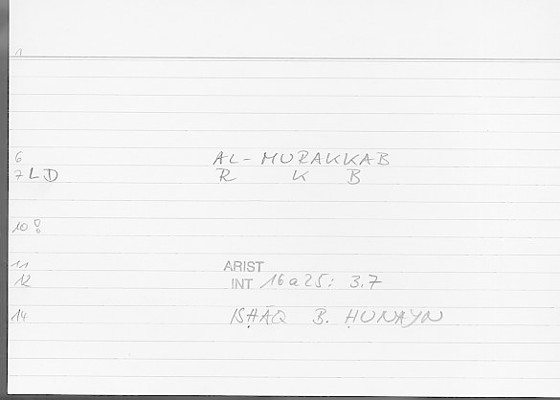 1
6 AL-MURAKKAB
7 LD R K B
10 8
11 ARIST
12 INT 16a25: 3.7
14 ISḤĀQ B. ḤUNAYN